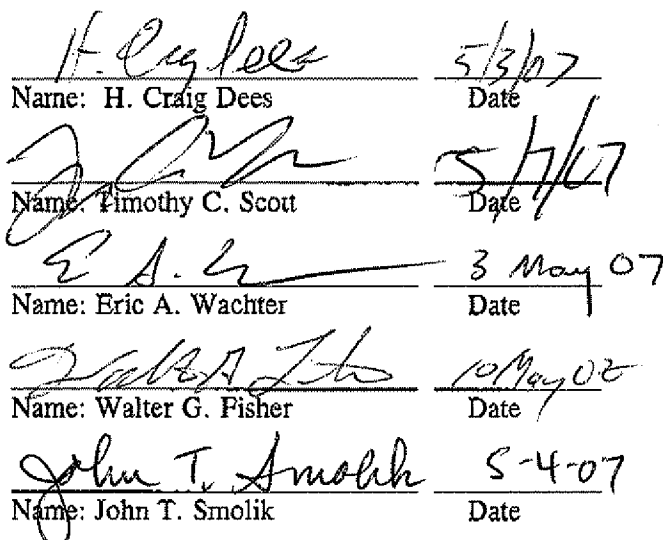 H. Craig Dees 5/3/07
Name: H. Craig Dees Date
5/7/07
Name: Timothy C. Scott Date
E A. 3 May 07
Name: Eric A. Wachter Date
10 May 07
Name: Walter G. Fisher Date
John T. Smolik 5-4-07
Name: John T. Smolik Date